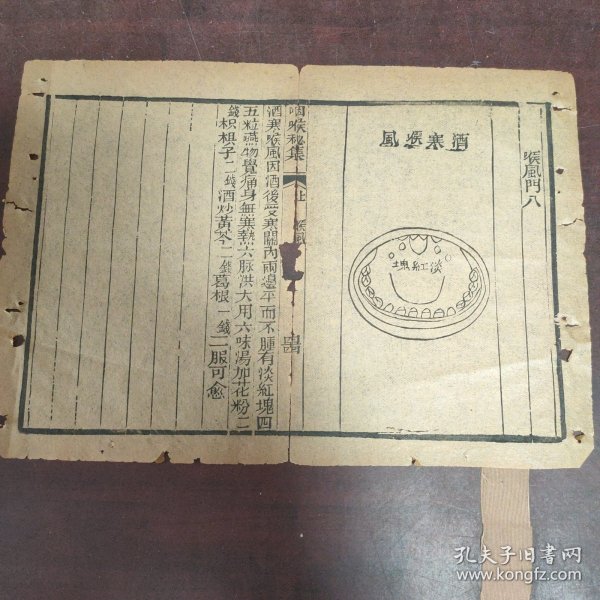 喉風門八
酒寒喉風
淡紅塊
咽喉秘集
上
喉風
酒寒喉風因酒後受寒關內兩邊平而不腫有淡紅塊四
五粒燕物覺痛身無寒熱六脉洪大用六味湯加花粉二
錢枳椇子二錢酒炒黃芩二錢葛根一錢二服可愈
孔夫子旧书网
www.kongfz.com